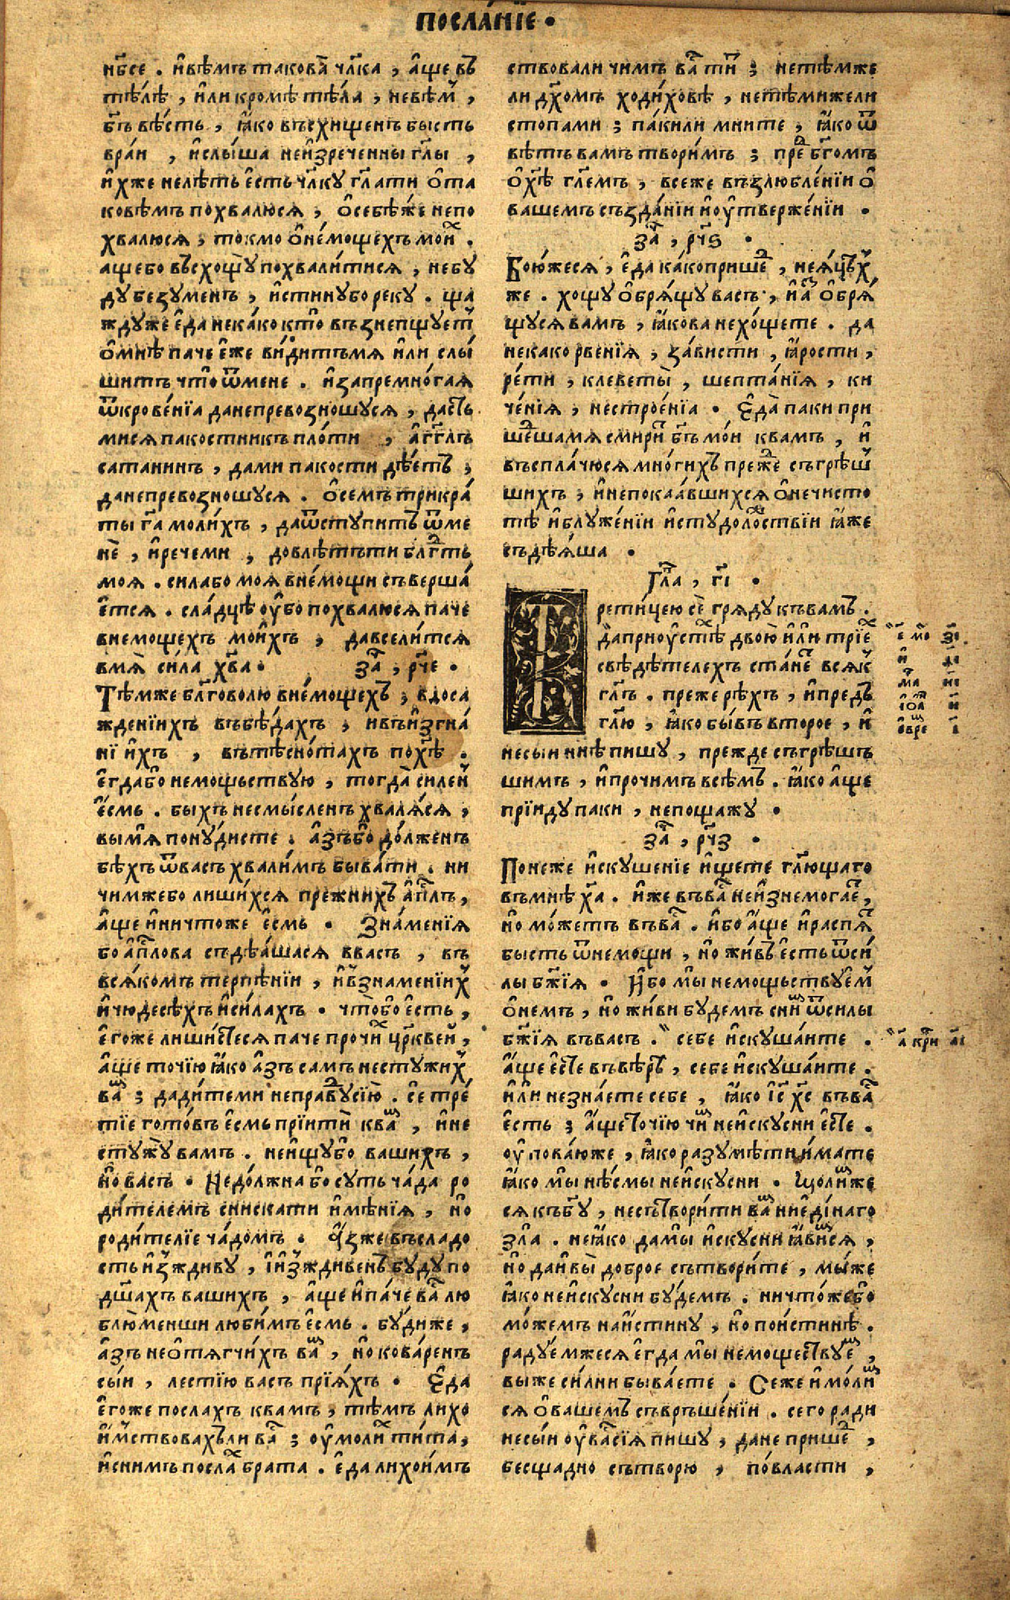 посла́нїе •
нб҃се . и҆ вѣмъ такова̀ чл҃ка , а҆ще въ
тѣлѣ , и҆ли кромѣ тѣла , не вѣмⷨ ,
бг҃ъ вѣсть , ꙗ҆ко въсхищенъ бысть
в раи , и҆ слы́ша неи҆зреченны гл҃ы ,
и҆хже не лѣть є҆сть чл҃ку гл҃ати ѻ҆ та
ковѣмъ похвалюся , ѻ҆ себѣже не по
хвалюся , токмо ѻ҆ не́мощехъ мои́ⷯ .
аще бо въсхощу̀ похвали́тися , не бу
ду безуменъ , и҆стину бо реку . ща
ждуже є҆да не ка́ко кто̀ възнепщуеⷮ
ѻ҆ мнѣ паче є҆же ви́дитъ мя и҆ли слы́
шитъ что̀ ѿ мене . и҆ за премно́гая
ѿкрове́нїа да не превозношуся , даⷭть
ми ся пакостникъ пло́ти , а҆гг҃лъ
сатанинъ , да ми пакости дѣ́етъ ,
да не превозношуся . ѻ҆ семъ трикра́
ты гⷭ҇а моли́хъ , да ѿступитъ ѿ ме
нѐ , и҆ рече ми , довлѣ́етъ ти блгⷣть
моя . сила бо моя в не́мощи съверша́
є҆тся . сла́дцѣ ѹ҆бо похвалюся паче
в немощехъ мои́хъ , да вселится
в мя̀ си́ла хв҃а . заⷱ , рч҃е .
Тѣ́мже бл҃говолю в не́мощехъ , в доса
жденїихъ въ бѣ́дахъ , и въ и҆згна́
нїихъ , въ тѣсно́тахъ по хⷭ҇ѣ .
є҆гда бо немощьствую , тогда̀ силеⷩ҇
є҆́смь . быхъ несмы́сленъ хваля́ся ,
вы мя̀ пону́дисте . а҆зъ бо до́лженъ
бѣхъ ѿ васъ хвалимъ быва́ти . ни
чимже бо лиши́хся пре́жнихъ а҆пⷭ҇лъ ,
а҆ще и҆ ничтоже є҆смь . Зна́менїя
бо а҆пⷭ҇лова съдѣ́ашася в васъ , въ
вся́комъ терпѣ́нїи , и҆ в знаменїихⷯ
и҆ чюдесѣ́хъ и҆ си́лахъ . что̀ бо є҆сть ,
є҆гоже лиши́стеся паче прочи́ⷯ цр҃квей ,
а҆ще то́чїю ꙗ҆ко а҆зъ самъ не стужи́хⷯ
ваⷨ ; дади́те ми непраⷡду сїю̀ . се тре́
тїе гото́въ є҆смь прїитѝ к ваⷨ , и҆ не
стужу̀ вамъ . не и҆щу́ бо вашихъ ,
но̀ васъ . Не до́лжна бо суть ча́да ро
ди́телемъ снискати и҆мѣ́нїя , но
роди́телїе ча́домъ . А҆́зже въ сладо
сть и҆зждиву , и҆ и҆зждивенъ бу́ду по
дш҃ахъ вашихъ , а҆ще и҆ па́че ваⷭ лю
блю̀ менши любимъ є҆смь . бу́диже ,
а҆зъ не ѻ҆тягчи́хъ ваⷭ , но кова́ренъ
сы́и , ле́стїю васъ прїя́хъ . Є҆да
є҆гоже послахъ к вамъ , тѣмъ лихо
и҆́мствовахъ ли ваⷭ ; ѹ҆моли́хъ ти́та ,
и҆ с нимъ посла́ⷯ брата . є҆да лихои́мъ
ствовали чимъ ваⷭ ти́ⷮ ; не тѣмже
ли дх҃омъ ходи́ховѣ , не тѣмижели
стопами ; па́ки ли мните , ꙗ҆ко ѿ
вѣтъ вамъ творимъ ; преⷣ бг҃омъ
ѻ҆ хⷭ҇ѣ гл҃емъ , всеже възлю́бленїи ѻ҆
вашемъ създа́нїи и҆ ѹ҆тверже́нїи .
заⷱ , рч҃ѕ .
Бою́жеся , є҆да ка́ко прише́ⷣ , не яцѣхⷯ
же . хощу̀ ѻ҆бря́щу васъ , и҆ аⷥ ѻ҆бря́
щуся вамъ , ꙗ҆кова не хо́щете . да
не како рве́нїя , за́висти , ꙗ҆рости ,
ре́ти , клеветы̀ , шепта́нїя , ки
че́нїя , нестрое́нїа . Є҆да̀ паки при
шеⷣша мя смири́т бг҃ъ мо́и к вамъ , и҆
въспла́чюся мно́гихъ преⷤе съгрѣ́шⷲ
шихъ , и҆ не пока́авшихся ѻ҆ нечисто
тѣ̀ и҆ блуже́нїи и҆ студоло́жствїи ꙗ҆же
съдѣ́яша .
Глаⷡ , гі .
Третїцею сѐ гряду къ вамъ .
да при ѹ҆стѣⷯ двою̀ и҆ли трїе́ⷯ
свѣдѣ́телехъ ста́неⷮ вся́к
гл҃ъ . преже рѣхъ , и҆ предъ
гл҃ю , ꙗ҆ко бы́въ второе , и҆
не сыи нн҃ѣ пишу , прежде съгрѣшъ
шимъ , и҆ прочимъ всѣмъ . ꙗ҆ко аще
прїиду паки , не пощажу .
заⷱ , рч҃з .
Понеже и҆скушенїе и҆щете гл҃ющаго
въ мнѣ хⷭ҇а . и҆же въ ваⷭ не и҆знемога́еⷮ ,
но мо́жетъ въ ваⷭ . и҆бо а҆ще и҆ распяⷮ
бысть ѿ не́мощи , но жи́въ є҆сть ѿ си́
лы бж҃їя . И҆бо мы̀ немощьствуеⷨ
ѻ҆ немъ , но жи́ви бу́демъ с ни́ⷨ ѿ силы
бж҃їя въ васъ . себе и҆скуша́ите .
а҆ще є҆сте въ вѣ́рѣ , себе и҆скуша́ите .
и҆ли не зна́ете себе , ꙗ҆ко і҆с҃ хс҃ въ ваⷭ
є҆сть ; а҆ще точїю̀ чиⷨ не и҆скусни є҆сте .
ѹ҆пова́юже , ꙗ҆ко разумѣ́ти и҆мате
ꙗ҆ко мы̀ нѣсмы неи҆скусни . Молиⷨже
ся къ бг҃у , не сътвори́ти ваⷨ ни є҆ди́наго
зла . не ꙗ҆ко да мы̀ и҆скусни ꙗ҆ви́ⷨся ,
но да и҆ вы̀ доброе сътвори́те , мы́же
ꙗ҆ко неи҆скусни бу́демъ . ничто́же бо
мо́жемъ на и҆́стину , но по и́стинѣ .
радуе́мжеся є҆гда мы̀ немощеⷭтвуеⷨ ,
выже си́лни быва́ете . Сеже и҆ мо́лиⷨ
ся ѻ҆ вашемъ съвръше́нїи . сего ради
не сы́и ѹ҆ ваⷭ сїя пишу , да не прише́ⷣ ,
бесщадно сътворю , по власти ,